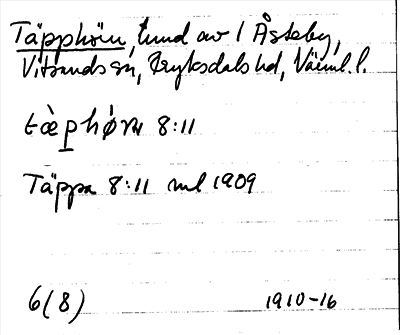 Täpphörn, tund av 1 Åsteby,
Vitsands sn, Fryksdals hd, Värml. l.
tæ̀p hǿrn 8:11
Täppa 8:11 ml 1909
6(8) 1910-16